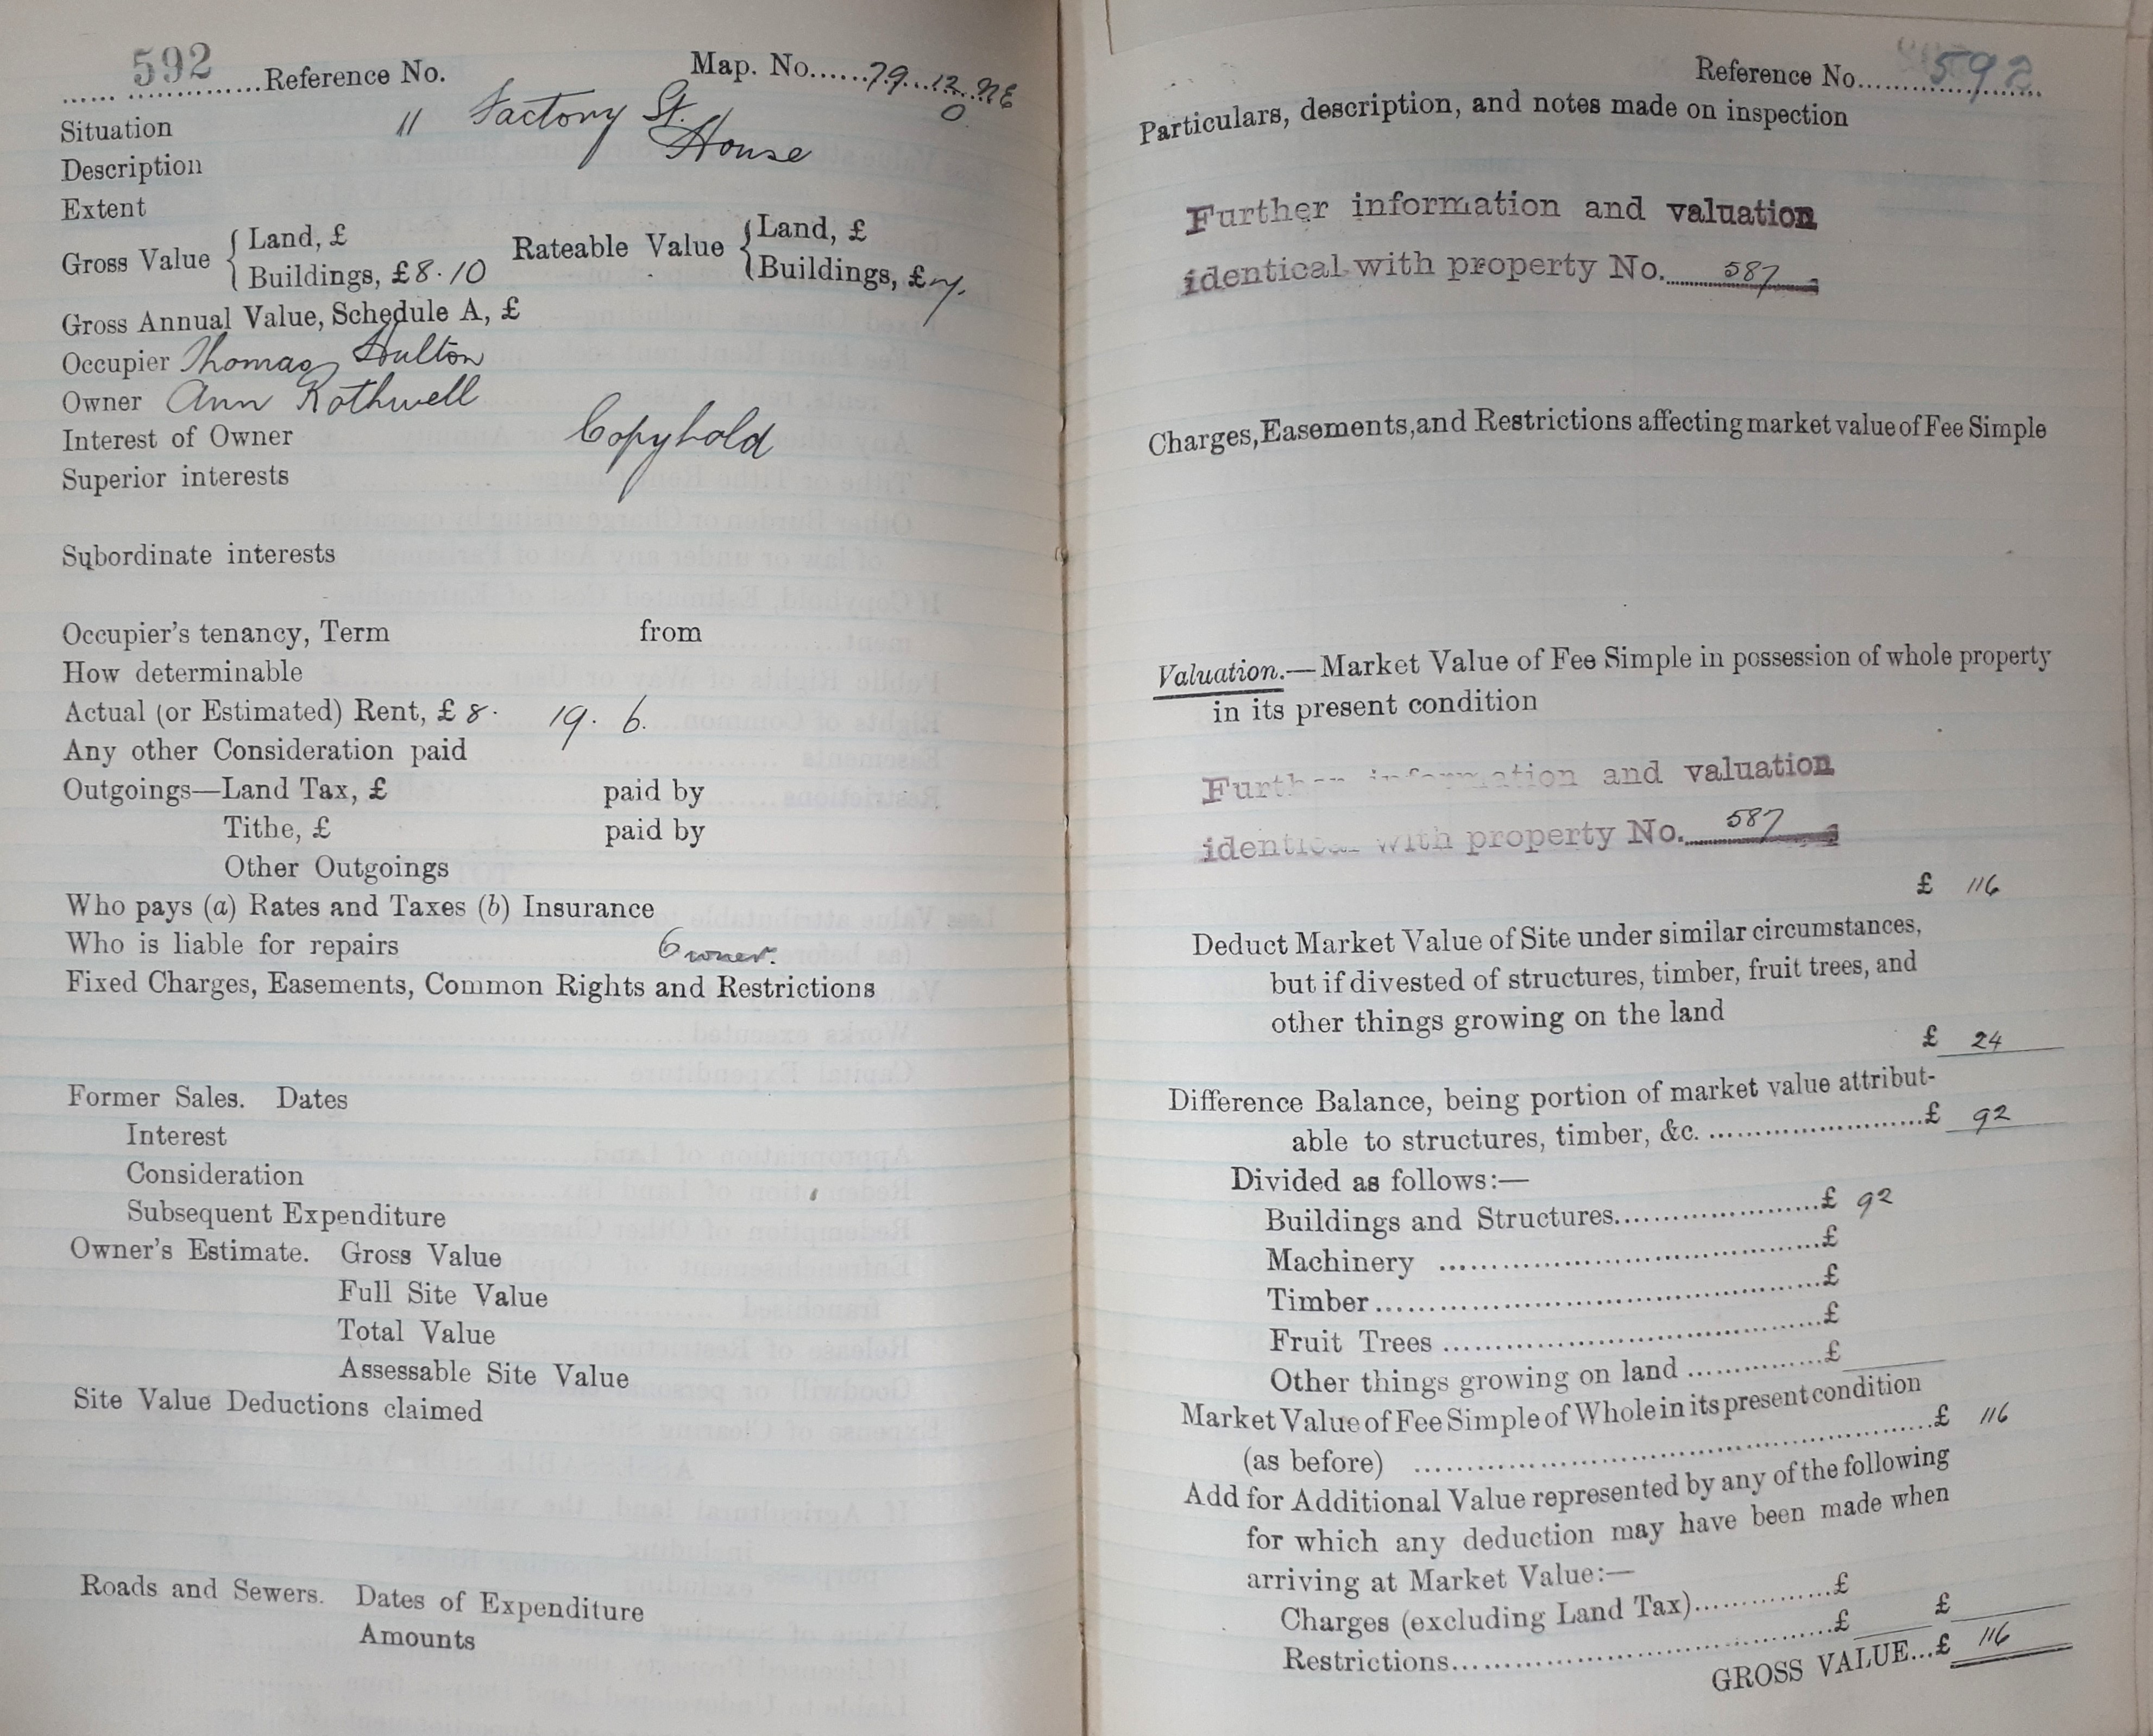 592 Reference No. Map. No. 79.12.NE
0
Situation 11 Factory St.
Description House
Extent
Gross Value { Land, £
Buildings, £8.10
Rateable Value { Land, £
Buildings, £7.
Gross Annual Value, Schedule A, £
Occupier Thomas Hulton
Owner Ann Rothwell
Interest of Owner Copyhold
Superior interests
Subordinate interests
Occupier's tenancy, Term from
How determinable
Actual (or Estimated) Rent, £ 8. 19. 6.
Any other Consideration paid
Outgoings—Land Tax, £ paid by
Tithe, £ paid by
Other Outgoings
Who pays (a) Rates and Taxes (b) Insurance
Who is liable for repairs Owner.
Fixed Charges, Easements, Common Rights and Restrictions
Former Sales. Dates
Interest
Consideration
Subsequent Expenditure
Owner's Estimate. Gross Value
Full Site Value
Total Value
Assessable Site Value
Site Value Deductions claimed
Roads and Sewers. Dates of Expenditure
Amounts
Reference No. 592
Particulars, description, and notes made on inspection
Further information and valuation
identical with property No. 587
Charges, Easements, and Restrictions affecting market value of Fee Simple
Valuation.—Market Value of Fee Simple in possession of whole property
in its present condition
Further information and valuation
identical with property No. 587
£ 116
Deduct Market Value of Site under similar circumstances,
but if divested of structures, timber, fruit trees, and
other things growing on the land
£ 24
Difference Balance, being portion of market value attribut-
able to structures, timber, &c. ........................£ 92
Divided as follows:—
Buildings and Structures......................£ 92
Machinery ........................................£
Timber..............................................£
Fruit Trees ........................................£
Other things growing on land ..............£
Market Value of Fee Simple of Whole in its present condition
(as before) ........................................................£ 116
Add for Additional Value represented by any of the following
for which any deduction may have been made when
arriving at Market Value:—
Charges (excluding Land Tax)..............£
Restrictions........................................£ £
GROSS VALUE...£ 116